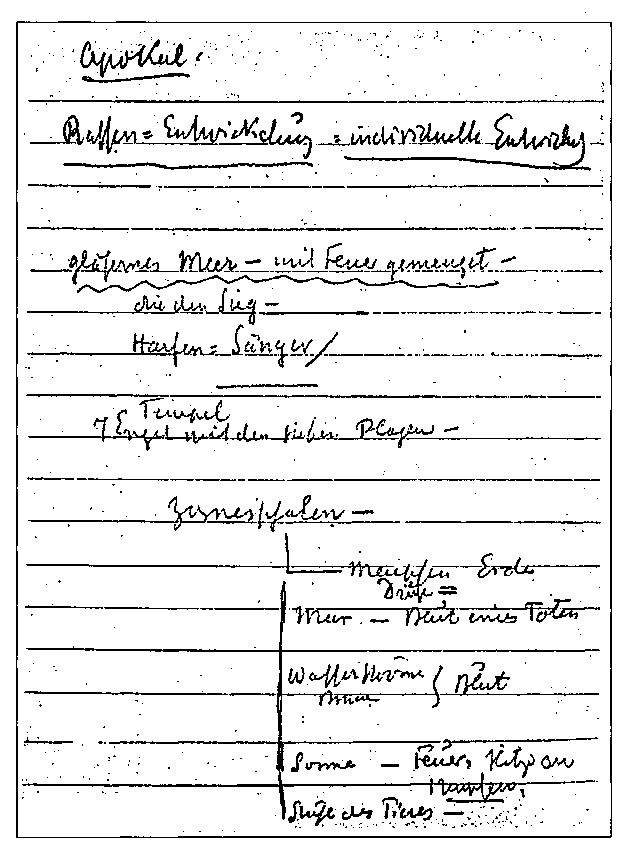 Apokal.
Rassen = Entwickelung = individuelle Entwicklg
gläsernes Meer – mit Feuer gemenget –
die den Sieg –
Harfen = Sänger /
Tempel
7 Engel mit den sieben Plagen –
Zornesschalen –
Menschen Erde
Drüse =
Meer – Blut eines Toten
Wasserströme } Blut
Sonne – Feuer, Hitze an
Menschen,
des Tieres –